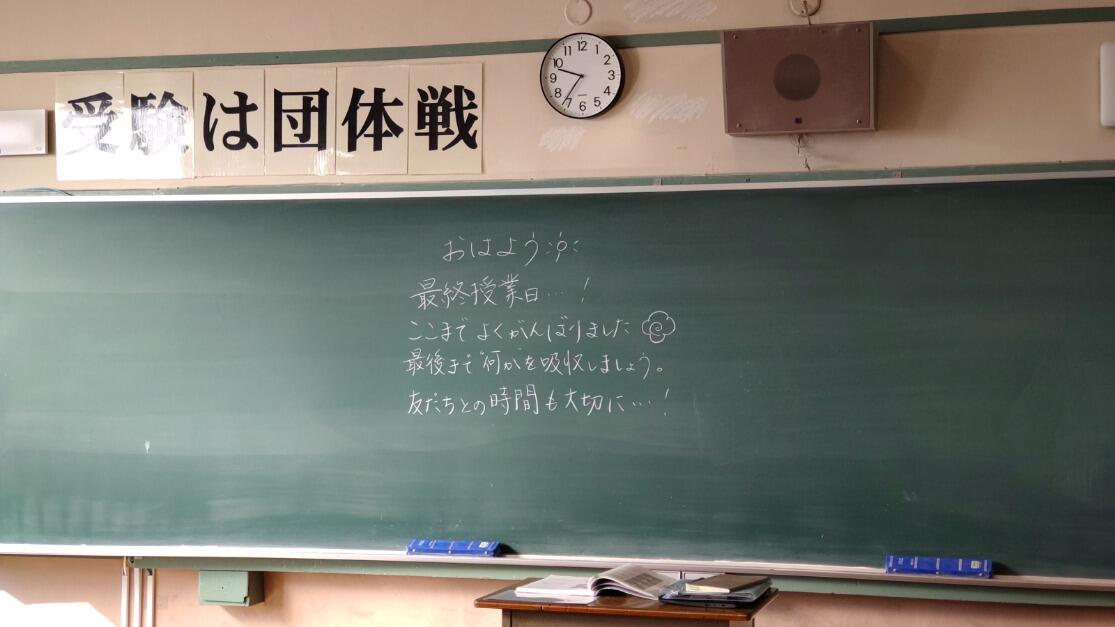 受験は団体戦
12
1
2
3
4
5
6
7
8
9
10
11
おはよう
最終授業日…!
ここまでよくがんばりました
最後まで何かを吸収しましょう。
友だちとの時間も大切に…!